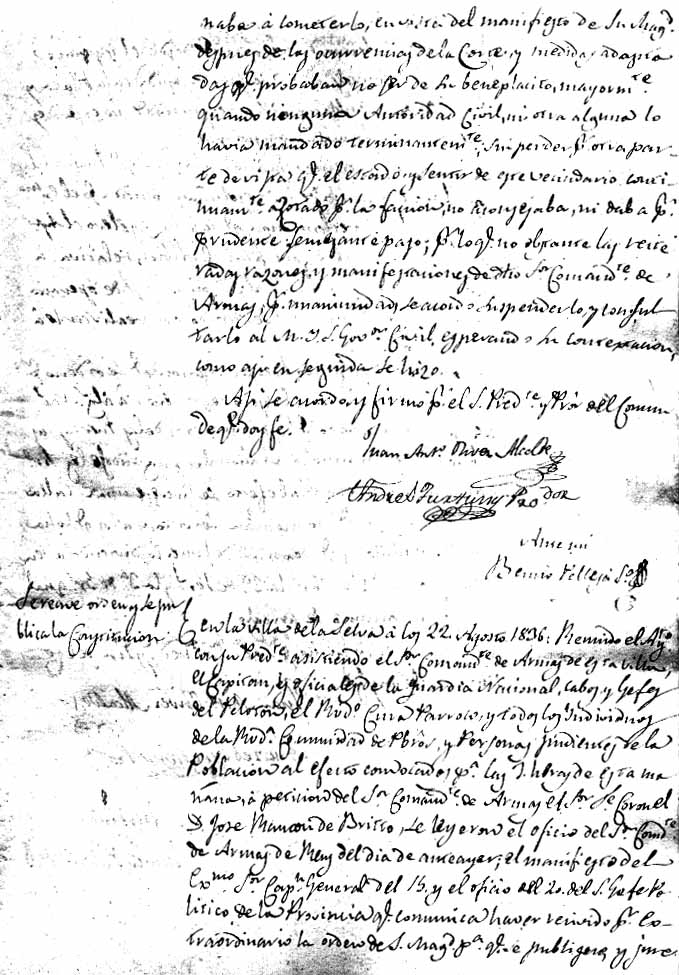 naba à cometerlo, en vista del manifiesto de Su Magd.
despues de las ocurrencias de la Corte, y medidas adopta
das qe. probaban no ser de su beneplacito, mayormte.
quando ninguna Autoridad Civil, ni otra alguna lo
havia mandado terminantemte.; sin perder pr. otra par
te de vista qe. el estado y sentir de este vecindario conti
nuamte. azorado pr. la faccion, no aconsejaba, ni daba pr.
prudente semejante paso; pr. lo qe. no obstante las reite
radas razones, y manifestaciones de dho Sor. Comandte. de
Armas, pr. unanimidad, se acordó suspenderlo, y consul
tarlo al M. I. S. Govor. Civil, esperando su contextacion,
como aqui en seguida se hizo.
Asi se acordó, y firmó pr. el S. Predte. y Pror. del Comun
de qe. doy fe.
Juan Anto. Oliver Alcalde
Andres Prodor
Ante mi
Benito Pelleja Srio
Se recive orden y se pu
blica la Constitucion
En la villa de la Selva à los 22 Agosto 1836: Reunido el Ayto.
con su Predte. asistiendo el Sor. Comandte. de Armas de esta villa,
el Capitan, y oficiales de la Guardia Nacional, Cabos, y Gefes
del Peloton, el Rvdo. Cura Parroco, y todos los Individuos
de la Rvda. Comunidad de Pbros, y Personas pudientes de la
Poblacion al efecto convocados pa. las horas de esta ma
ñana, à peticion del Sor. Comandte. de Armas el Sor. Te. Coronel
D. Jose Mancon de Brisso, se leyeron el oficio del Sr. Comdte.
de Armas de Reus del dia de anteayer; el manifiesto del
Exmo. Sor. Capn. General del 15, y el oficio del 20. del S. Gefe Po
litico de la Provincia qe. comunica haver recivido pr. Ex
traordinario la orden de S. Magd. pa. qe. se publique, y jure